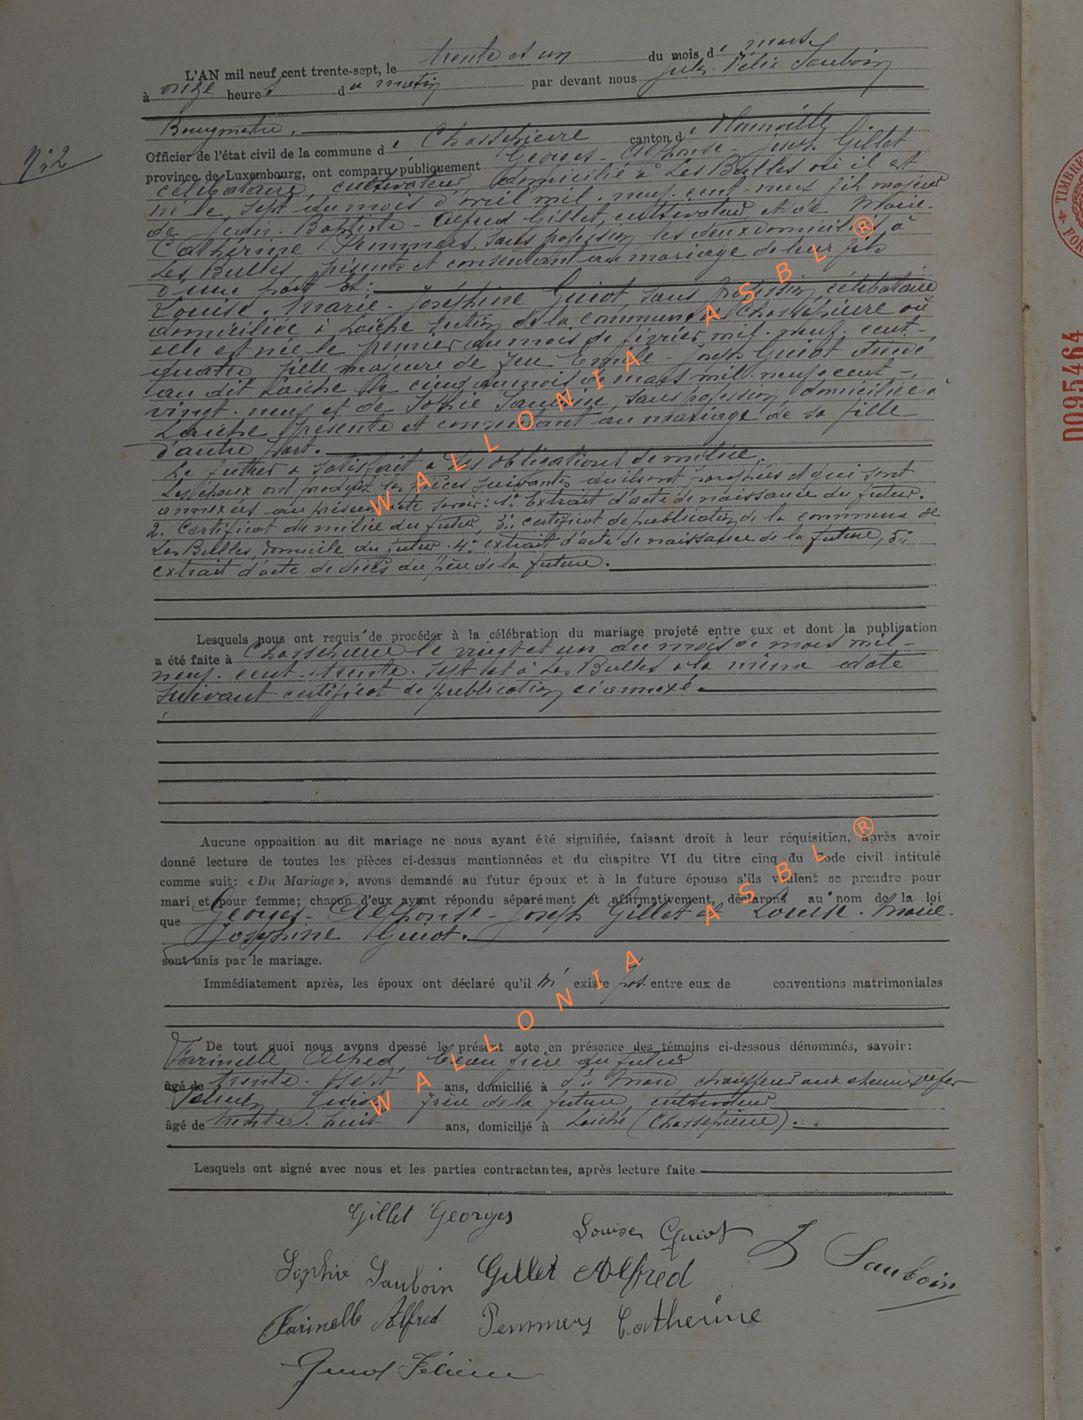 L'AN mil neuf cent trente-sept, le trente et un du mois de mars
à onze heures du matin par devant nous Jules Félix Sauboin
Bourgmestre.
N° 2
Officier de l'état civil de la commune de Chassepierre canton de Florenville
province de Luxembourg, ont comparu publiquement Georges - Alphonse - Joseph Gillet
célibataire, cultivateur, domicilié à Les Bulles où il est
né le sept du mois d'avril mil neuf cent neuf fils majeur
de Jean - Baptiste - Alfred Gillet, cultivateur et de Marie -
Catherine Pemmers, sans profession, les deux domiciliés à
Les Bulles, présents et consentant au mariage de leur fils
d'une part et:
Louise - Marie - Joséphine Guiot sans profession, célibataire
domiciliée à Laiche section de la commune de Chassepierre où
elle est née le premier du mois de février mil - neuf - cent -
quatre fille majeure de feu Emile - Joseph Guiot
au dit Laiche le cinq du mois de mars mil neuf cent -
vingt - neuf et de Sophie Sauboin, sans profession domiciliée à
Laiche présente et consentant au mariage de sa fille
d'autre part.
Le futur a satisfait à ses obligations de milice.
Les époux ont produit les pièces suivantes qu'ils ont paraphées et qui sont
annexées au présent acte savoir: 1° Extrait d'acte de naissance du futur.
2. Certificat de milice du futur 3: certificat de publication de la commune de
Les Bulles, domicile du futur. 4° extrait d'acte de naissance de la future, 5:
extrait d'acte de décès du père de la future.
Lesquels nous ont requis de procéder à la célébration du mariage projeté entre eux et dont la publication
a été faite à Chassepierre le vingt et un du mois de mars mil -
neuf - cent - trente - sept et à Les Bulles à la même date
suivant certificat de publication ci annexé.
Aucune opposition au dit mariage ne nous ayant été signifiée, faisant droit à leur réquisition, après avoir
donné lecture de toutes les pièces ci-dessus mentionnées et du chapitre VI du titre cinq du Code civil intitulé
comme suit: « Du Mariage », avons demandé au futur époux et à la future épouse s'ils veulent se prendre pour
mari et pour femme; chacun d'eux ayant répondu séparément et affirmativement, déclarons au nom de la loi
que Georges - Alphonse - Joseph Gillet et Louise - Marie -
Joséphine Guiot.
sont unis par le mariage.
Immédiatement après, les époux ont déclaré qu'il n'existe pas entre eux de conventions matrimoniales
De tout quoi nous avons dressé le présent acte en présence des témoins ci-dessous dénommés, savoir:
Farinelle Alfred, beau frère du futur
âgé de trente - sept ans, domicilié à chauffeur aux chemins de fer
Félicien Guiot frère de la future, cultivateur
âgé de trente - huit ans, domicilié à Laiche (Chassepierre).
Lesquels ont signé avec nous et les parties contractantes, après lecture faite
Gillet Georges
Louise Guiot
J Sauboin
Sophie Sauboin Gillet Alfred
Farinelle Alfred Pemmers Catherine
Guiot Félicien
WALLONIA ASBL ®
WALLONIA ASBL ®
TIMBRE
D095464